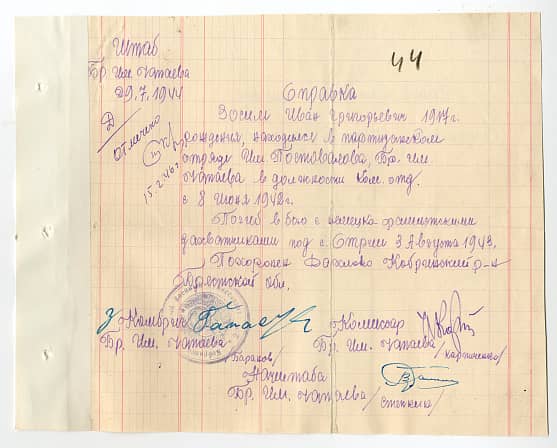 Штаб
Бр. Им. Чапаева
29.7.1944
44
Справка
Зосим Иван Григорьевич 1917г.
рождения, находился в партизанском
отряде Им. Постовалова, Бр. им
Чапаева в должности ком. отд.
с 8 Июня 1942г.
Погиб в бою с немецко-фашистскими
захватчиками под с. Стрии 3 Августа 1943.
Похоронен Кобринский р-н
Брестской обл.
Отмечено
15.2.46г.
Комбриг
Комиссар
Бр. Им. Чапаева
Бр. Им. Чапаева
Начштаба
Бр. Им. Чапаева